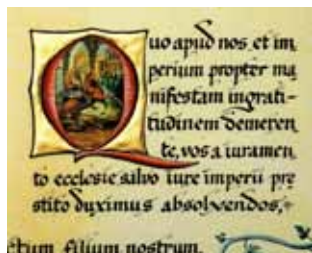 Quo apud nos et im
perium propter ma
nifestam ingrati-
tudinem demeren
te, vos a iuramen
to ecclesie salvo iure imperii pre
stito duximus absolvendos,
filium nostrum,